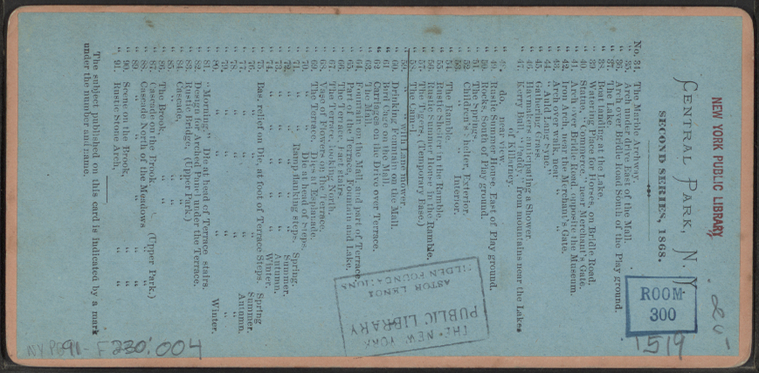 NEW YORK PUBLIC LIBRARY
CENTRAL PARK, N. Y
SECOND SERIES, 1868.
No. 34. The Marble Archway.
" 35. Arch under drive East of the Mall.
" 36. Arch over Bridle Road South of the Play ground.
" 37. The Lake.
" 38. Boat landing at the Lake.
" 39. Watering Place for Horses, on Bridle Road.
" 40. Statue, "Commerce," near Merchant's Gate.
" 41. Arch over Bridle Road, opposite the Museum.
" 42. Iron Arch, near
" 43. Arch over walk, near
" 44. "Auld Lang Syne."
" 45. Gathering Cones.
" 46. Haymakers anticipating a Shower
" 47. Kerry Bulls, from mountains near the Lakes
of Killarney.
" 48. do. rear view.
" 49. Rustic Summer House, East of Play ground.
" 50. Rocks, South of Play ground.
" 51. The Springs.
" 52. Children's shelter, Exterior.
" 53. " " Interior.
" 54. The Ramble.
" 55. Rustic Shelter in the Ramble.
" 56. Rustic Summer House in the Ramble.
" 57. The Tigress, (Temporary Base.)
" 58. The Camel.
" 59. " with Lawn mower.
" 60. Drinking Fountain on the Mall.
" 61. Bird Cage on the Mall.
" 62. Carriages on the Drive over Terrace.
" 63. The Mall.
" 64. Fountain on the Mall, and part of Terrace
" 65. Part of the Terrace, Fountain and Lake.
" 66. The Terrace, at stairs.
" 67. The Terrace, looking North.
" 68. Vase of Flowers on the Terrace.
" 69. The Terrace, Die at Esplanade.
" 70. " " Die at head of Steps.
" 71. " " Ramp flanking steps, Spring.
" 72. " " " " Summer.
" 73. " " " " Autumn.
" 74. " " " " Winter.
" 75. Bas. relief on Die, at foot of Terrace Steps. Spring
" 76. " " " " Summer.
" 77. " " " " Autumn.
" 78. " " " "
" 79. " " " "
" 80. " " " " Winter.
" 81. "Morning," Die at head of Terrace stairs.
" 82. Design for Arched Panel under the Terrace.
" 83. Rustic Bridge, (Upper Park.)
" 84. Cascade,
" 85.
" 86. The Brook,
" 87. Cascade on the Brook, (Upper Park.)
" 88. Cascade North of the Meadows
" 89. " "
" 90. Scene on the Brook,
" 91. Rustic Stone Arch,
The subject published on this card is indicated by a mark
under the number and name.
ROOM
300
1519
THE NEW YORK
PUBLIC LIBRARY
ASTOR LENOX
TILDEN FOUNDATIONS
004